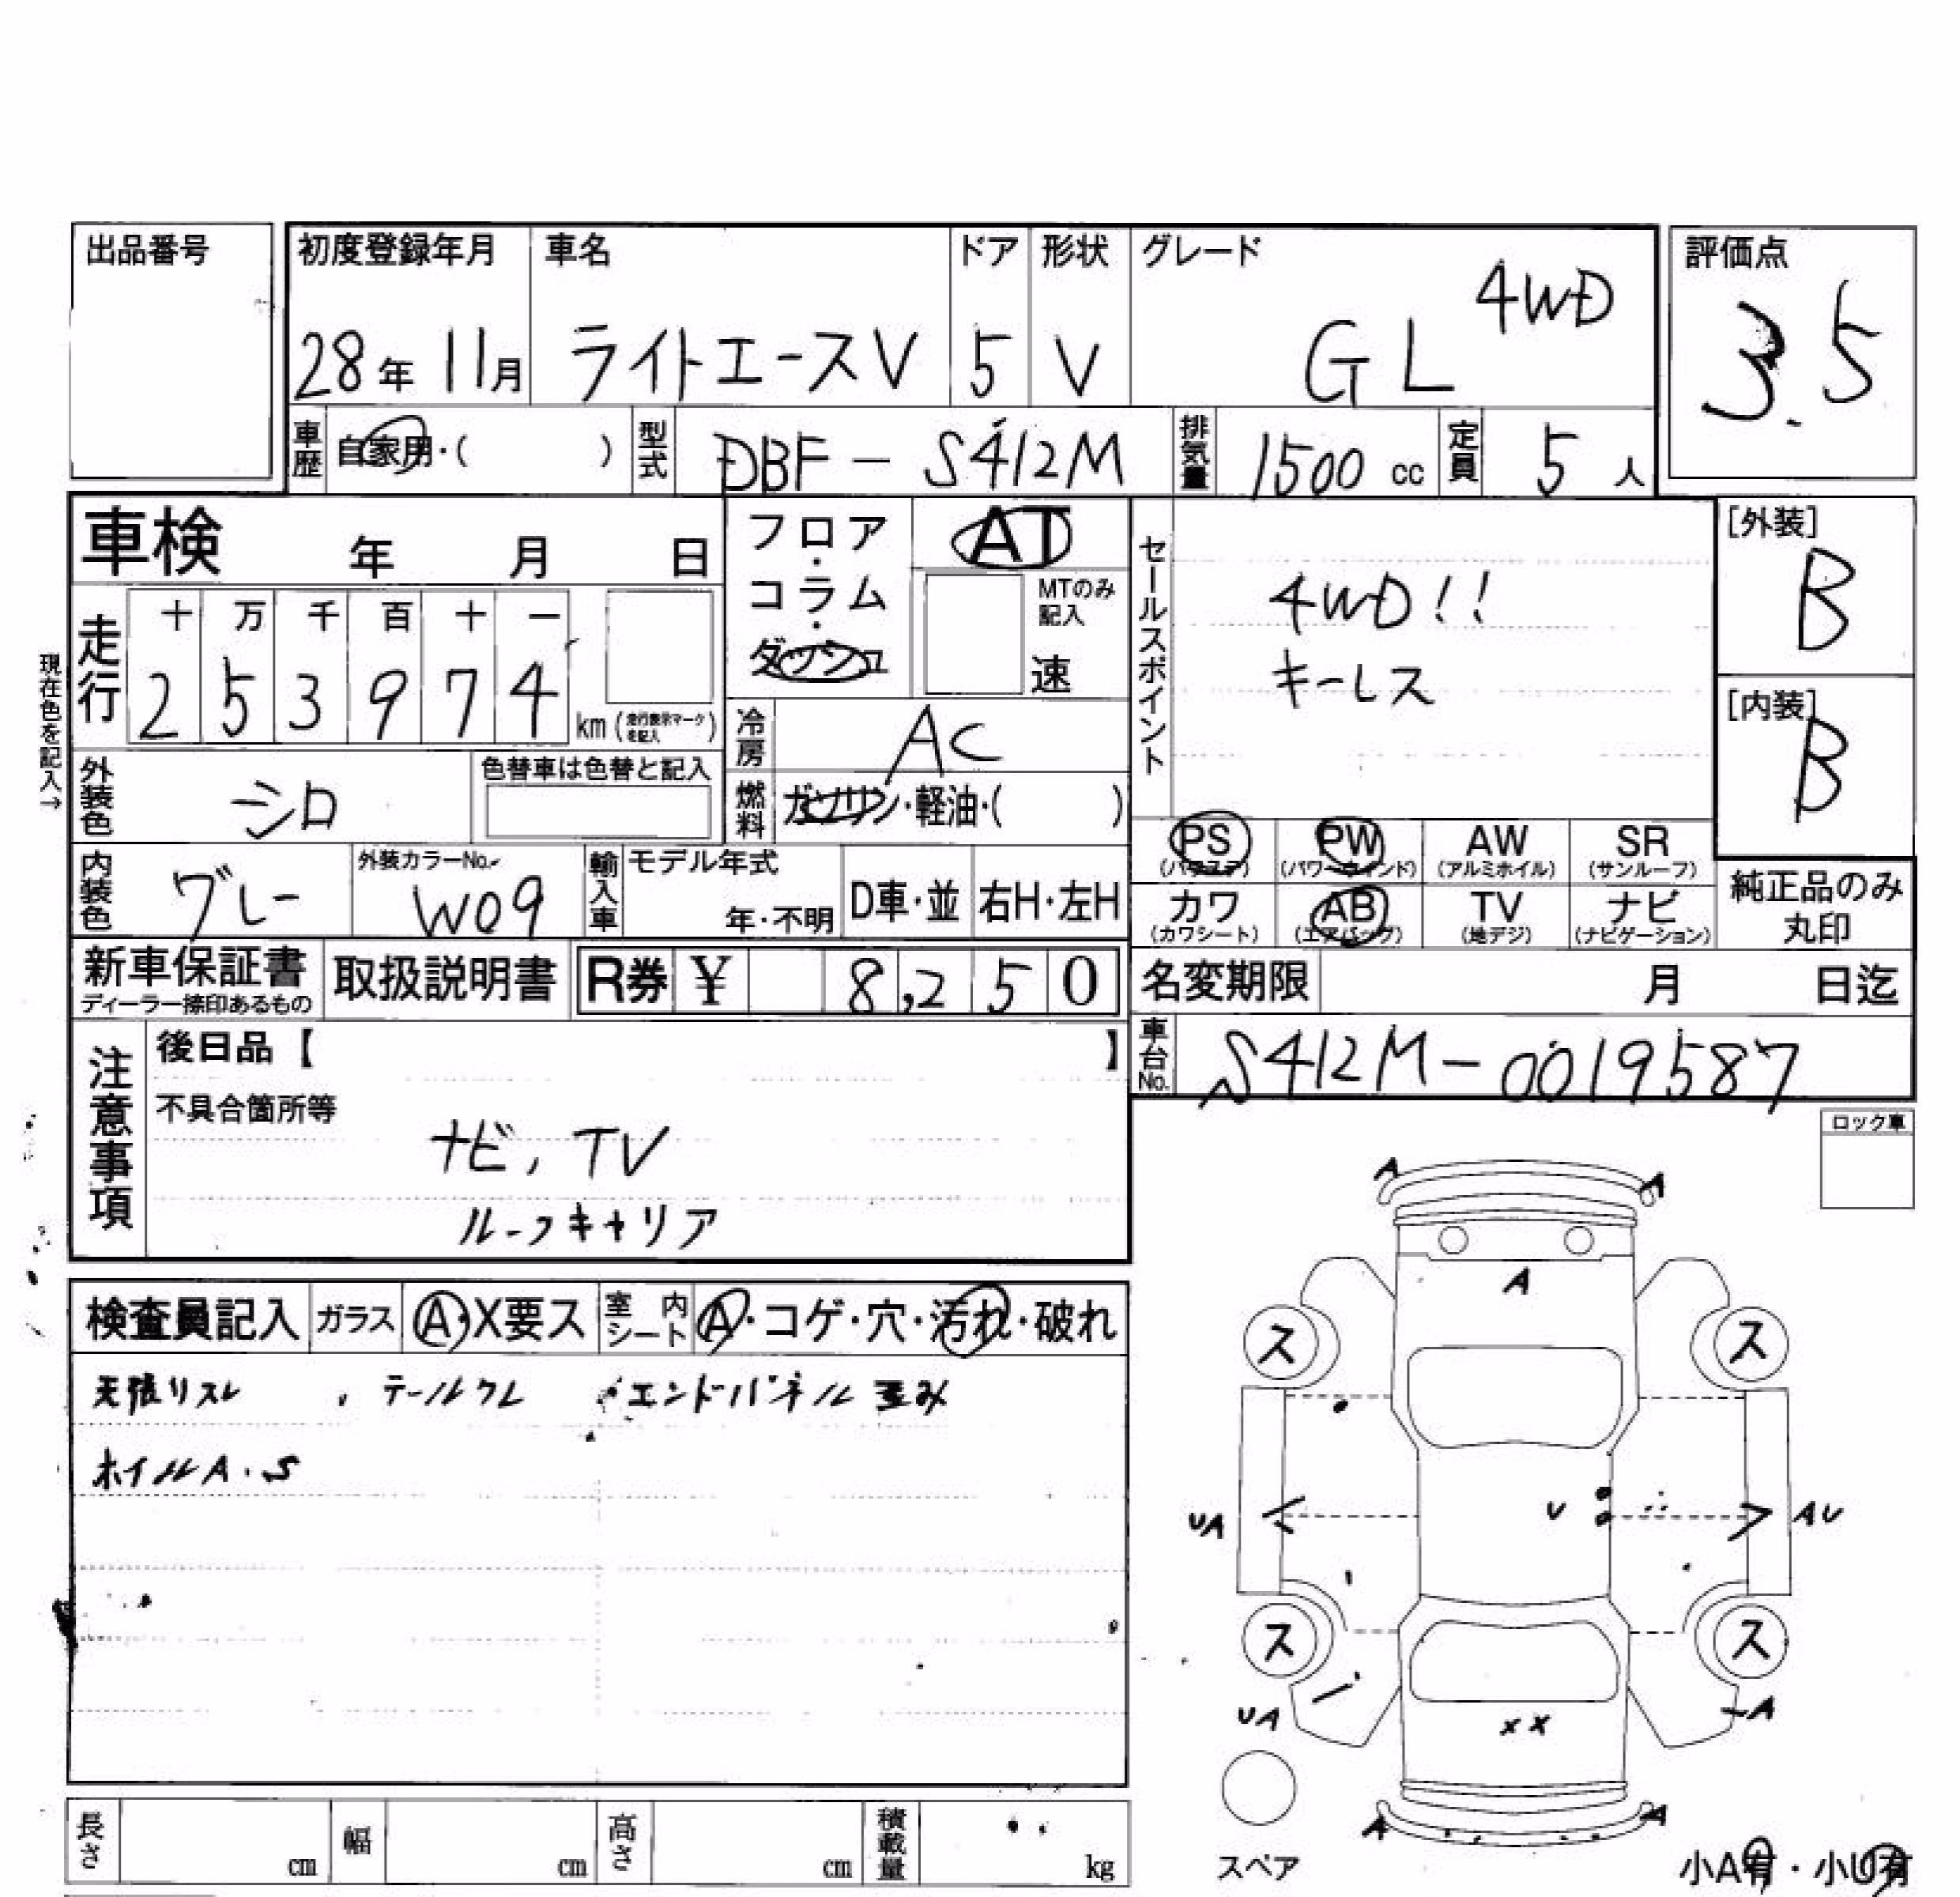 出品番号
初度登録年月 車名 ドア 形状 グレード 評価点
28年 11月 ライトエースV 5 V GL 4WD 3.5
車歴 自家用・( ) 型式 DBF-S412M 排気量 1500cc 定員 5人
車検 年 月 日
フロア・コラム・ダッシュ
AT
MTのみ記入
速
セールスポイント
4WD!!
キーレス
[外装]
B
[内装]
B
現在色を記入→
走行
十 万 千 百 十 一
2 5 3 9 7 4 km (走行表示マークを記入)
冷房 AC
外装色 シロ 色替車は色替と記入
燃料 ガソリン・軽油・( )
PS (パワステ) PW (パワーウィンド) AW (アルミホイル) SR (サンルーフ)
カワ (カワシート) AB (エアバッグ) TV (地デジ) ナビ (ナビゲーション)
純正品のみ丸印
内装色 グレー 外装カラーNo. W09 輸入車 モデル年式 年・不明 D車・並 右H・左H
新車保証書 ディーラー捺印あるもの 取扱説明書 R券 ¥ 8,250
名変期限 月 日迄
車台No. S412M-0019587
注意事項
後日品【 】
不具合箇所等
ナビ, TV
ルーフキャリア
ロック車
検査員記入 ガラス A・X要ス 室内シート A・コゲ・穴・汚れ・破れ
天張リスレ , テールワレ エンドパネル歪み
ホイルA.S
A A
A
ス ス
UA U AU
ス ス
UA A
XX
A A
スペア
小A有・小U有
長さ cm 幅 cm 高さ cm 積載量 kg